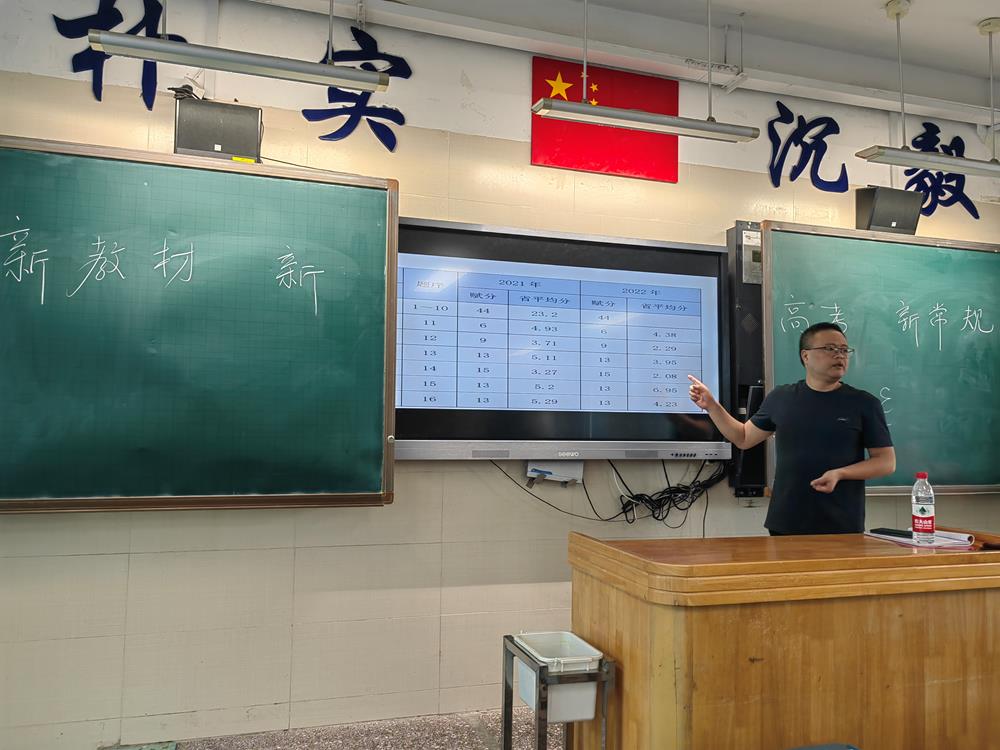 朴 实 沉 毅
新 教 材 新
题序 2021 年 2022 年
赋分 省平均分 赋分 省平均分
1—10 44 23.2 44
11 6 4.93 6 4.38
12 9 3.71 9 2.29
13 13 5.11 13 3.95
14 15 3.27 15 2.08
15 13 5.2 13 6.95
16 13 5.29 13 4.23
seewo
高 考 新 常 规